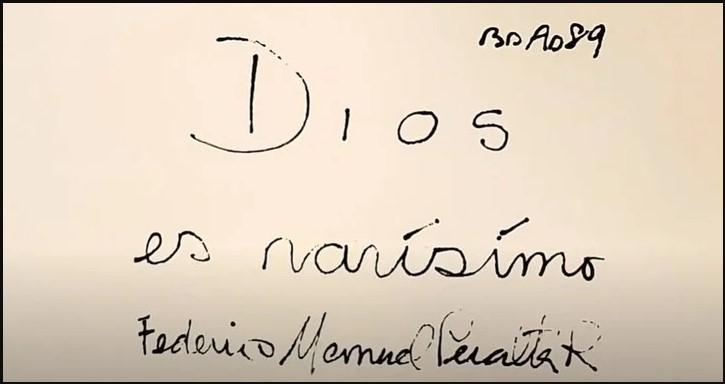 BDAD89
Dios
es rarísímo
Federico Manuel Peralta R